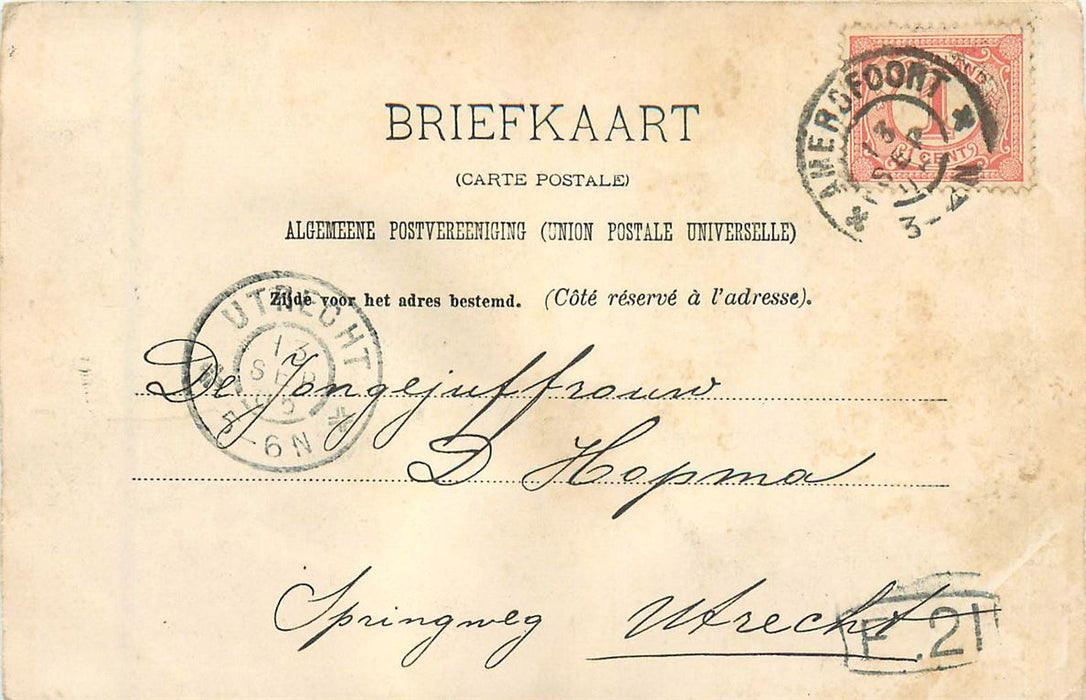 BRIEFKAART
(CARTE POSTALE)
ALGEMEENE POSTVEREENIGING (UNION POSTALE UNIVERSELLE)
Zijde voor het adres bestemd. (Côté réservé à l'adresse).
De Jongejuffrouw
D Hopma
Springweg Utrecht
AMERSFOORT
13
SEP
3-4 N
1
CENT
UTRECHT
13
SEP
05
5-6N
F.21